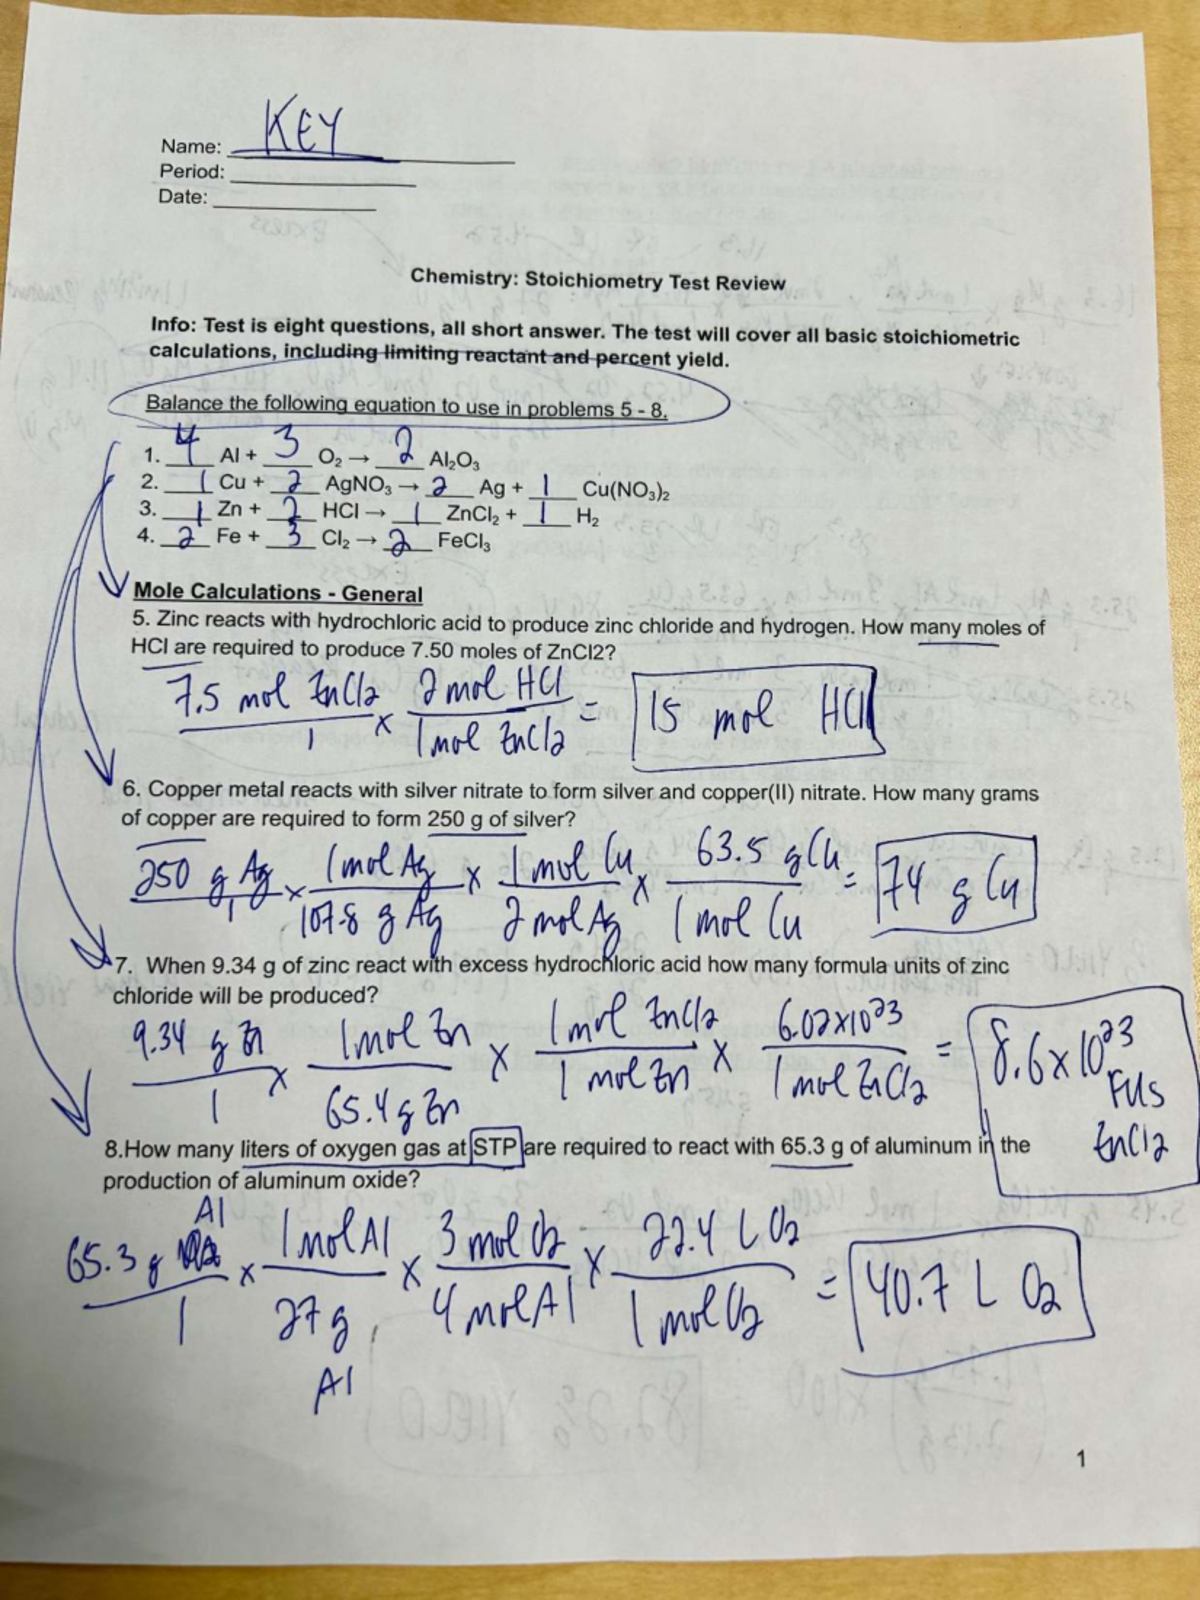 Name: KEY
Period:
Date:
Chemistry: Stoichiometry Test Review
Info: Test is eight questions, all short answer. The test will cover all basic stoichiometric
calculations, including limiting reactant and percent yield.
Balance the following equation to use in problems 5 - 8.
1. 4 Al + 3 O₂ → 2 Al₂O₃
2. 1 Cu + 2 AgNO₃ → 2 Ag + 1 Cu(NO₃)₂
3. 1 Zn + 2 HCl → 1 ZnCl₂ + 1 H₂
4. 2 Fe + 3 Cl₂ → 2 FeCl₃
Mole Calculations - General
5. Zinc reacts with hydrochloric acid to produce zinc chloride and hydrogen. How many moles of
HCl are required to produce 7.50 moles of ZnCl2?
7.5 mol ZnCl2 / 1 x 2 mol HCl / 1 mol ZnCl2 = 15 mol HCl
6. Copper metal reacts with silver nitrate to form silver and copper(II) nitrate. How many grams
of copper are required to form 250 g of silver?
250 g Ag / 1 x 1 mol Ag / 107.8 g Ag x 1 mol Cu / 2 mol Ag x 63.5 g Cu / 1 mol Cu = 74 g Cu
7. When 9.34 g of zinc react with excess hydrochloric acid how many formula units of zinc
chloride will be produced?
9.34 g Zn / 1 x 1 mol Zn / 65.4 g Zn x 1 mol ZnCl2 / 1 mol Zn x 6.02x10²³ / 1 mol ZnCl2 = 8.6x10²³ FUs ZnCl2
8.How many liters of oxygen gas at STP are required to react with 65.3 g of aluminum in the
production of aluminum oxide?
65.3 g Al / 1 x 1 mol Al / 27 g Al x 3 mol O2 / 4 mol Al x 22.4 L O2 / 1 mol O2 = 40.7 L O2
1